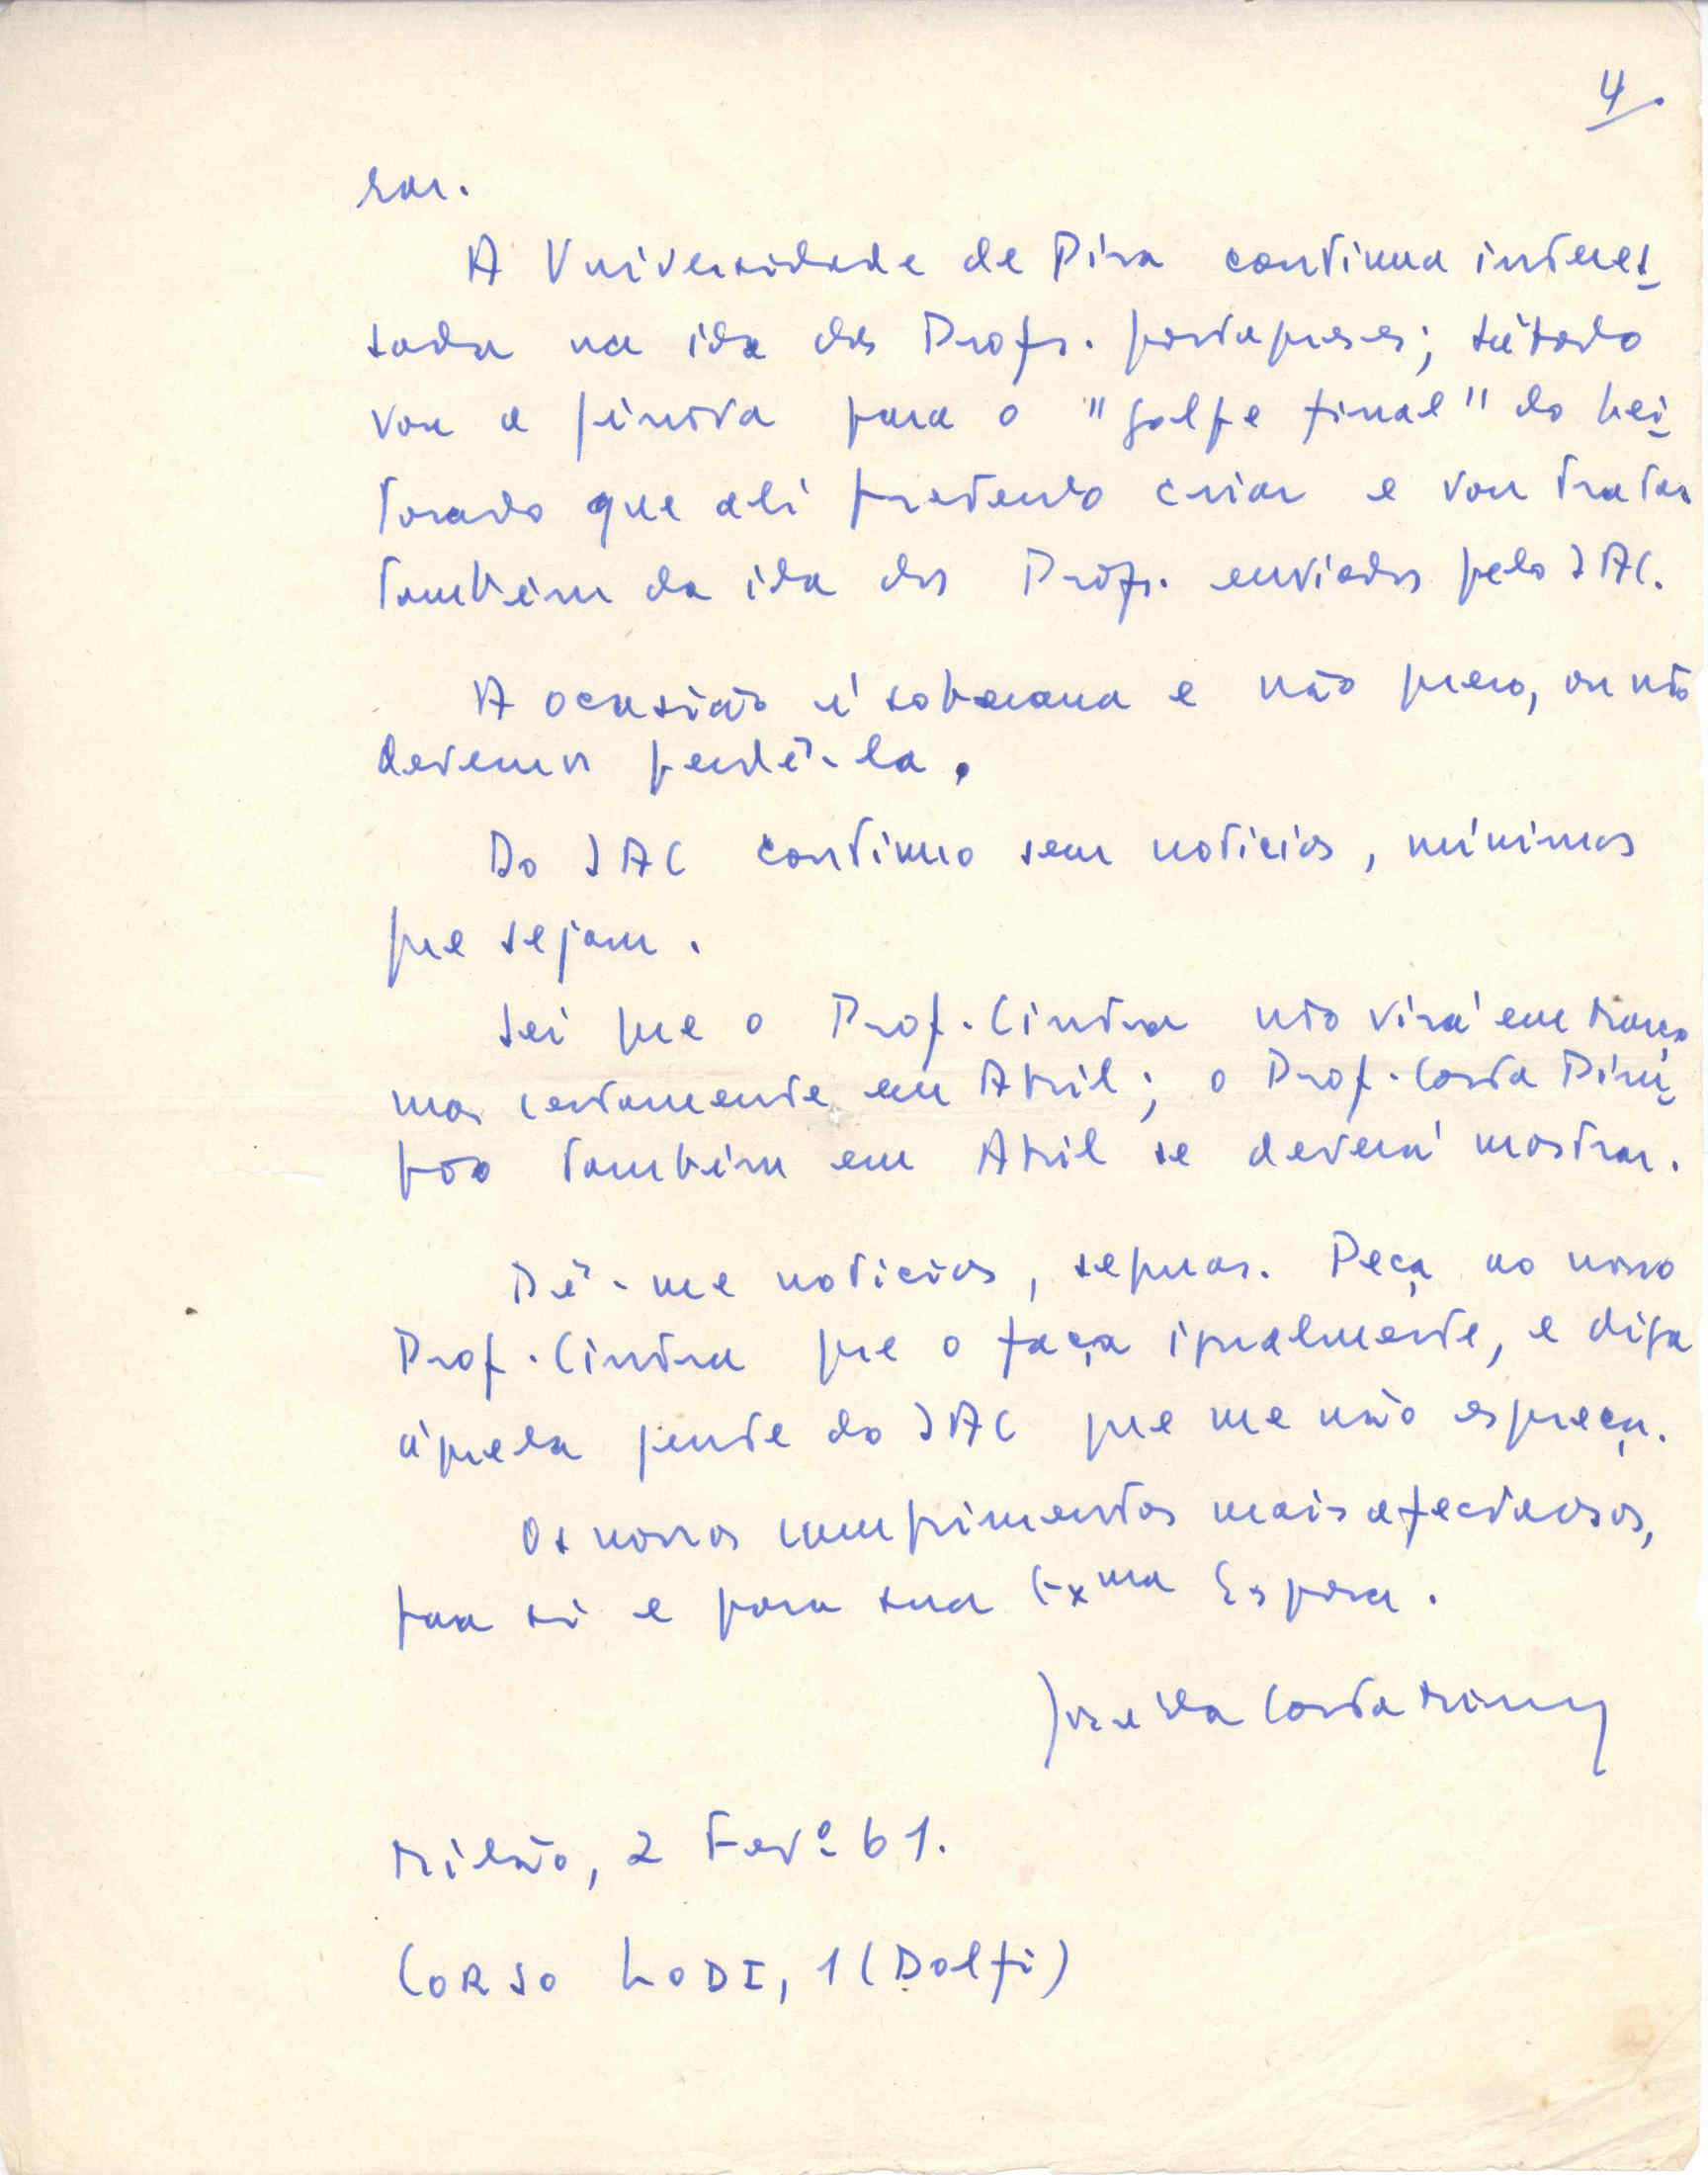 4.
rar.
A Universidade de Pisa continua interes-
sada na ida dos Profs. portugueses; sábado
vou a para o "golpe final" do Lei-
torado que ali pretendo criar e vou tratar
também da ida dos Profs. enviados pelo IAC.
A ocasião é soberana e não quero, ou não
devemos perdê-la.
Do IAC continuo sem noticias, mínimas
que sejam.
Sei que o Prof. Cintra não virá em Março
mas certamente em Abril; o Prof. Costa Pim-
pão também em Abril se deverá mostrar.
Dê-me noticias, seguras. Peça ao nosso
Prof. Cintra que o faça igualmente, e diga
àquela gente do IAC que me não esqueça.
Os nossos cumprimentos mais afectuosos,
para si e para sua Exma Esposa.
José da Costa Miranda
Milão, 2 Fevº 61.
CORSO LODI, 1 (Dolfi)